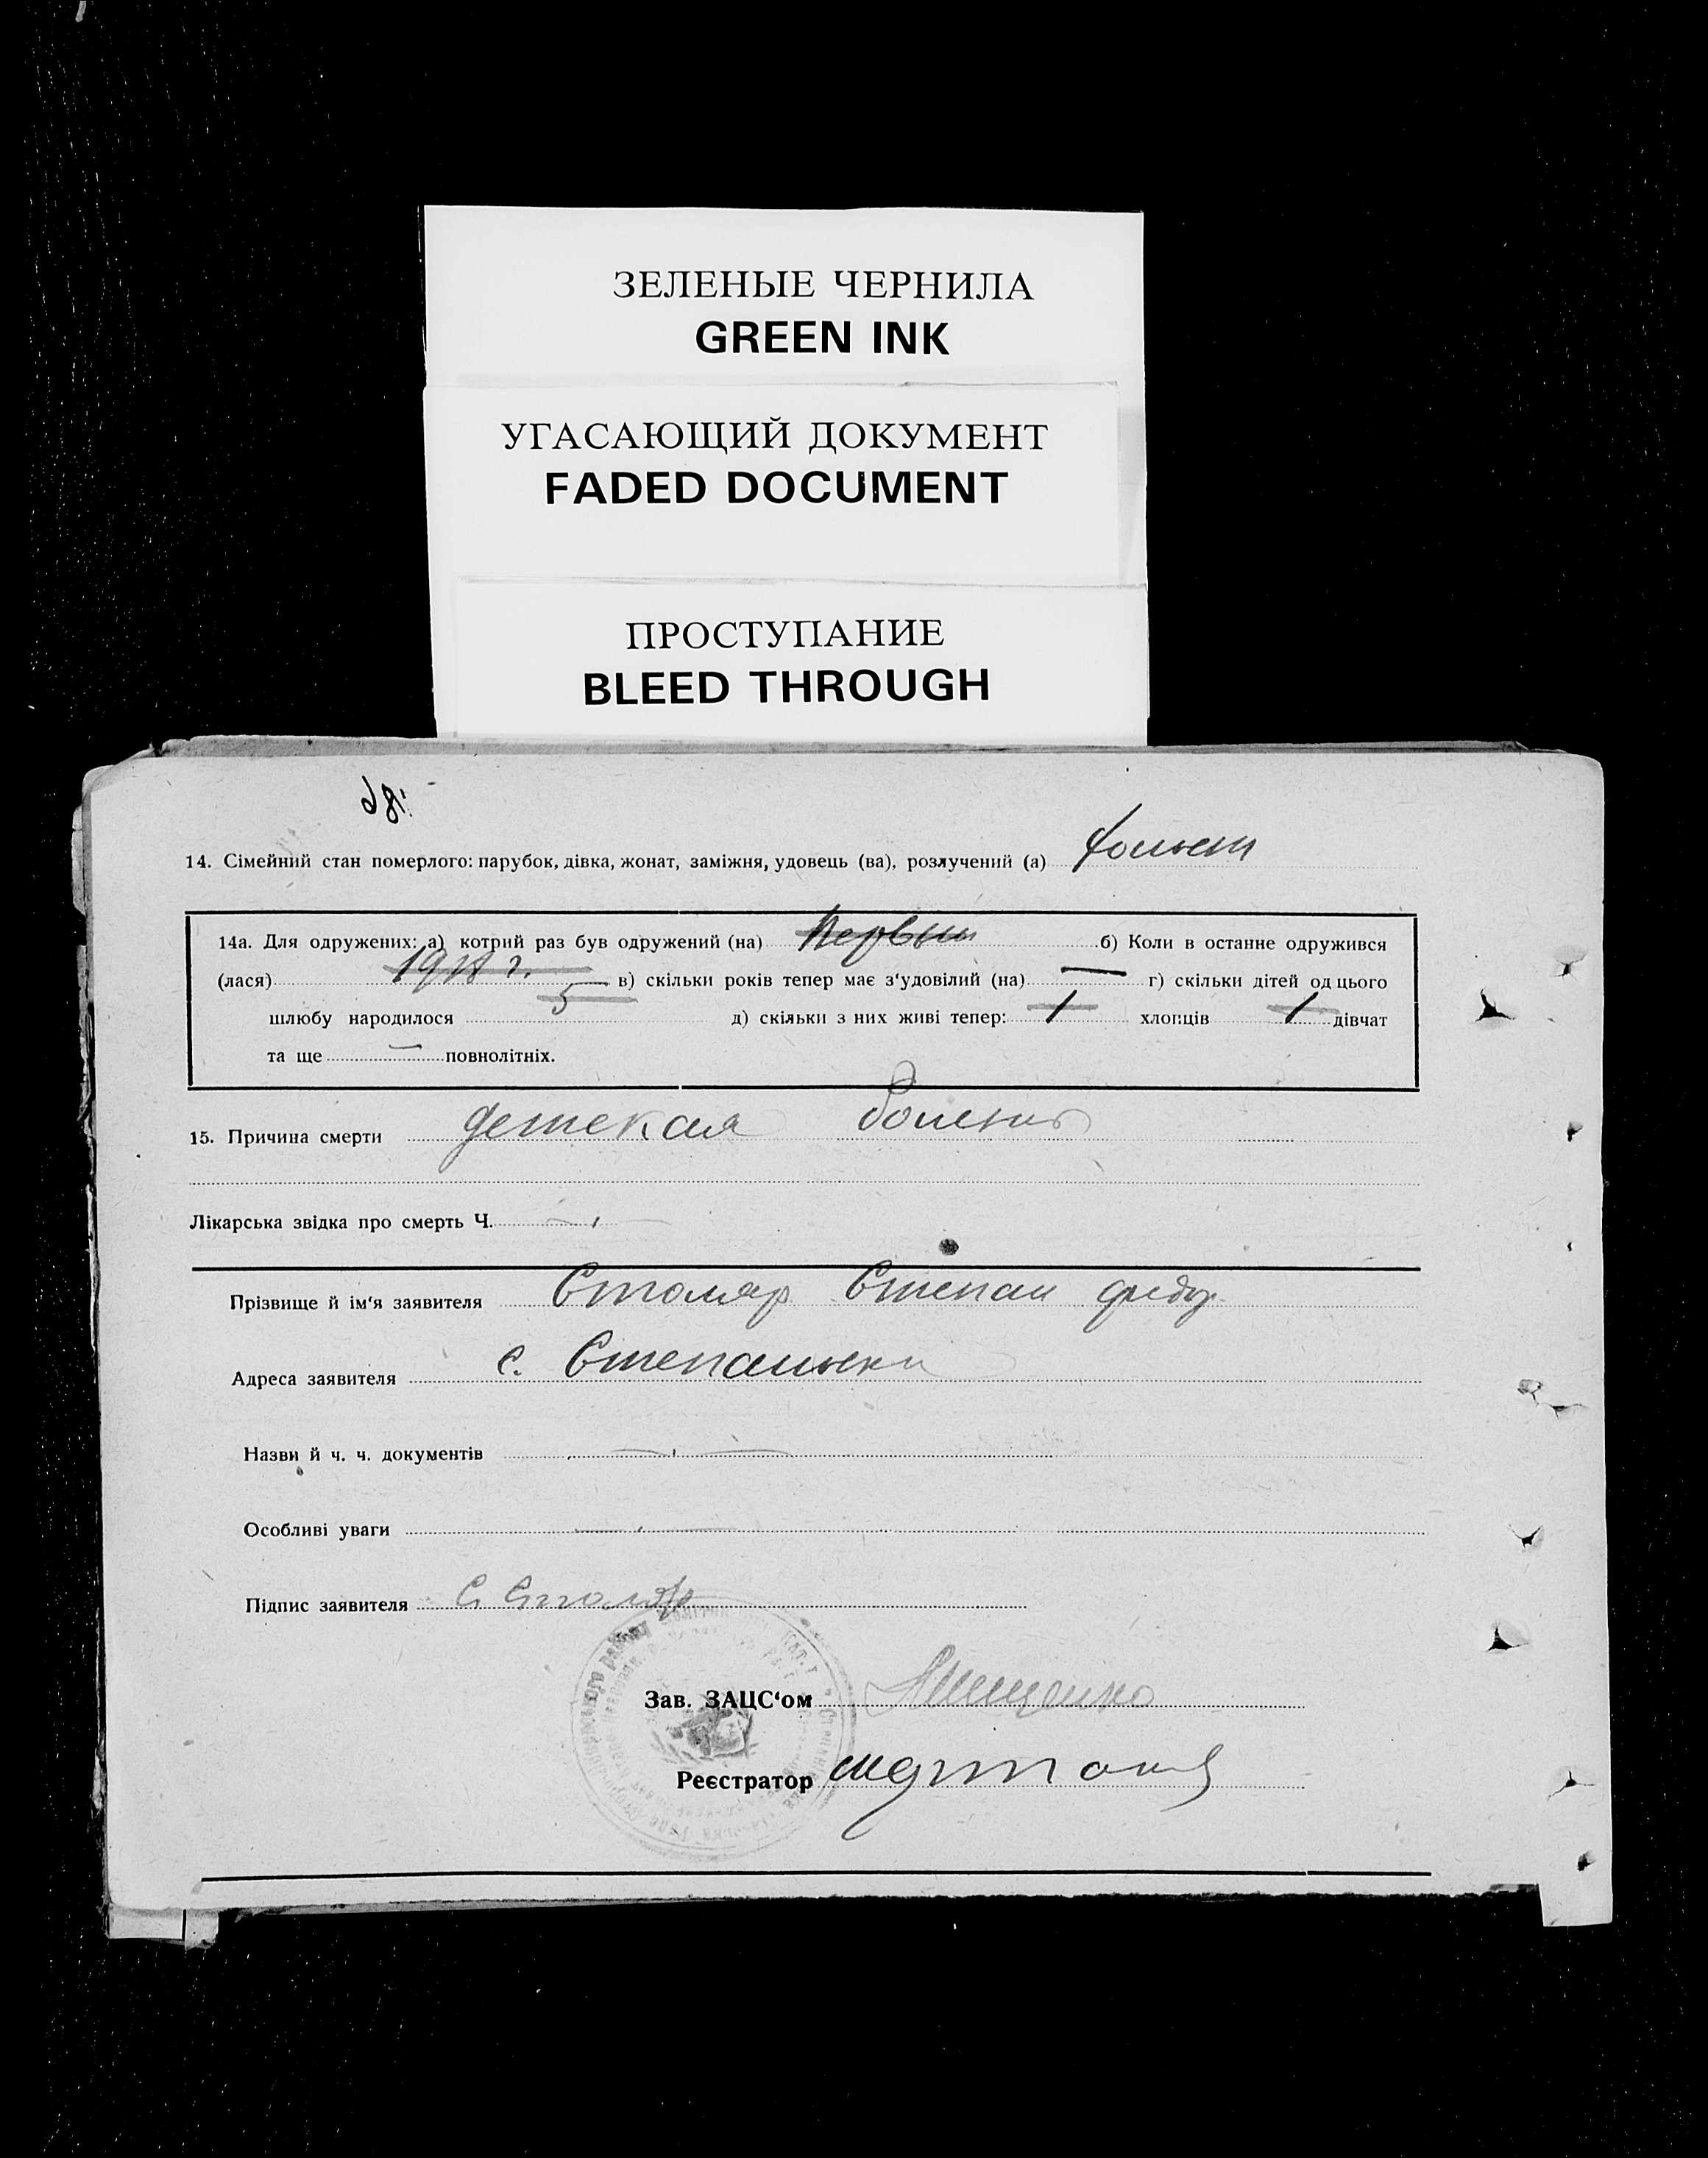 ЗЕЛЕНЫЕ ЧЕРНИЛА
GREEN INK
УГАСАЮЩИЙ ДОКУМЕНТ
FADED DOCUMENT
ПРОСТУПАНИЕ
BLEED THROUGH
14. Сімейний стан померлого: парубок, дівка, жонат, заміжня, удовець (ва), розлучений (а)
14а. Для одружених: а) котрий раз був одружений (на) Первый б) Коли в останне одружився
(лася) г. в) скільки років тепер має з'удовілий (на) — г) скільки дітей од цього
шлюбу народилося 5 д) скільки з них живі тепер: 1 хлопців 1 дівчат
та ще — повнолітніх.
15. Причина смерти детская болезнь
Лікарська звідка про смерть Ч.
Прізвище й ім'я заявителя Столяр Степан
Адреса заявителя с. Степаньки
Назви й ч. ч. документів
Особливі уваги
Підпис заявителя С Столяр
Зав. ЗАЦС'ом
Реєстратор